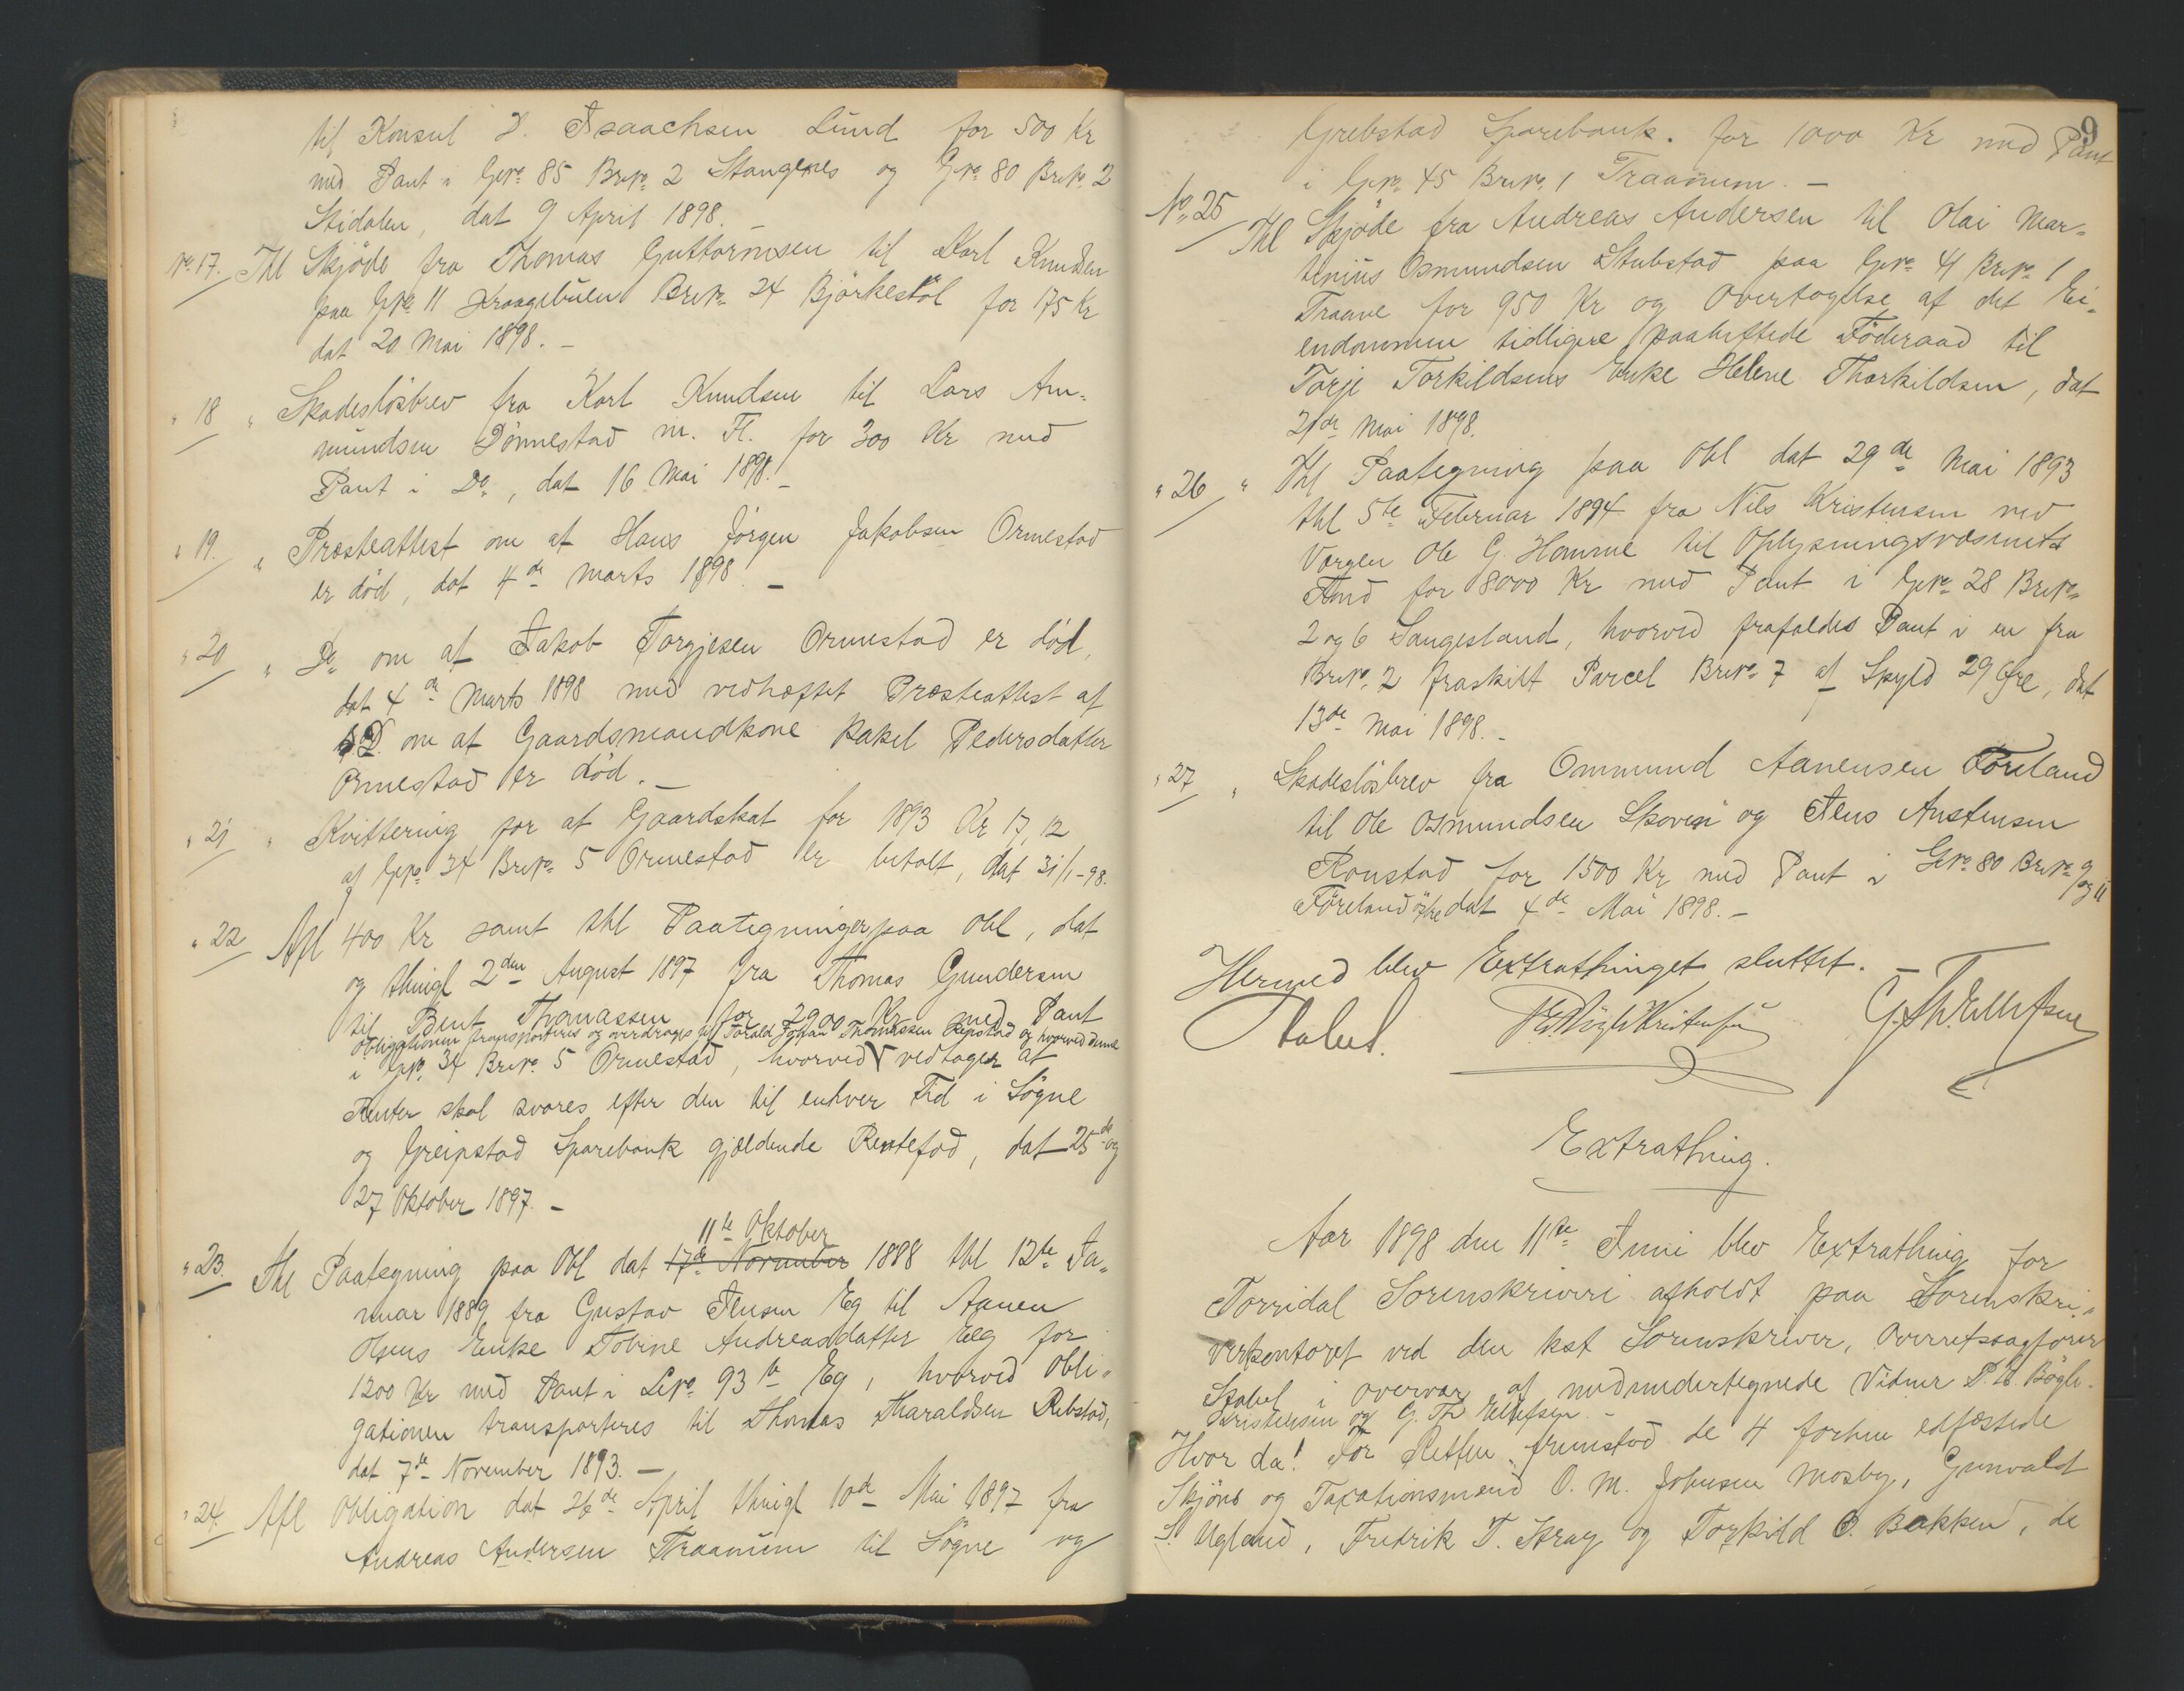 til Konsul D. Isaachsen Lund for 500 Kr
med Pant i Gno 85 Brno 2 Stangenes og Gno 80 Brno 2
Stidalen, dat 9 April 1898.
No 17. Thl Skjöde fra Thomas Guttormsen til Karl Knudsen
paa Gno 11 Kraagebuen Brno 24 Björkestöl for 175 Kr
dat 20 Mai 1898. -
" 18 " Skadeslösbrev fra Karl Knudsen til Lars Am-
mundsen Dönnestad m. Fl. for 300 Kr med
Pant i Do, dat 16 Mai 1898. -
" 19. " Præsteattest om at Hans Jörgen Jakobsen Ormestad
er död, dat 4de Marts 1898. -
" 20 " Do om at Jakob Torgjesen Ormestad er död,
dat 4de Marts 1898 med vedhæftet Præsteattest af
S. D. om at Gaardsmandkone Rakel Pedersdatter
Ormestad er död. -
" 21 " Kvittering for at Gaardskat for 1893 Kr 17,12
af Gno 34 Brno 5 Ormestad er betalt, dat 31/1-98.
" 22 Afl 400 Kr samt thl Paategninger paa Obl, dat
og thingl 2den August 1897 fra Thomas Gundersen
til Bent Thomassen for 2900 Kr med Pant
Obligationen transporteres og overdrages til Torald Johan Thomassen Repstad og hvorved denne
i Gno 34 Brno 5 Ormestad, hvorved V vedtager at
Renter skal svares efter den til enhver Tid i Sögne
og Greipstad Sparebank gjældende Rentefod, dat 25de og
27 Oktober 1897. -
11te Oktober
" 23. Thl Paategning paa Obl dat 17de November 1888 thl 12te Ja-
nuar 1889 fra Gustav Jensen Eg til Aanen
Olsens Enke Tobine Andreasdatter Eg for
1200 Kr med Pant i Lno 93 b Eg, hvorved Obli-
gationen transporteres til Thomas Tharaldsen Rebstad,
dat 7de November 1893. -
" 24. Afl Obligation dat 26de April thingl 10de Mai 1897 fra
Andreas Andersen Traanum til Sögne og
9
Grebstad Sparebank. for 1000 Kr med Pant
i Gno 45 Brno 1 Traanum. -
No 25 Thl Skjöde fra Andreas Andersen til Olai Mar-
tinius Osmundsen Stubstad paa Gno 41 Brno 1
Traane for 950 Kr og Overtagelse af det Ei-
endommen tidligere paaheftede Föderaad til
Torje Torkildsens Enke Helene Thorkildsen, dat
21de Mai 1898.
" 26 " Thl Paategning paa Obl dat 29de Mai 1893
thl 5te Februar 1894 fra Nils Kristensen ved
Vergen Ole G. Homme til Oplysningsvæsenets
Fond for 8000 Kr med Pant i Gno 28 Brno
2 og 6 Langesland, hvorved frafaldes Pant i en fra
Brno 2 fraskilt Parcel Brno 7 af Skyld 29 Öre, dat
13de Mai 1898. -
" 27 " Skadeslösbrev fra Ommund Aanensen Föreland
til Ole Osmundsen Skoven og Jens Austensen
Ronstad for 1500 Kr med Pant i Gno 80 Brno 9 og 11
Föreland östre dat 4de Mai 1898. -
Hermed blev Extrathinget sluttet. -
Stabel. P. W. Bögh Kristensen G. Th. Ellefsen
Extrathing.
Aar 1898 den 11te Juni blev Extrathing for
Torridal Sorenskriveri afholdt paa Sorenskri-
verkontoret ved den kst Sorenskriver, Overretssagförer
Stabel i overvær af medundertegnede Vidner P. W. Bögh-
Kristensen og G. Th Ellefsen. -
Hvor da! For Retten fremstod de 4 forhen edfæstede
Skjöns og Taxationsmænd O. M. Johnsen Mosby, Gunvald
S. Ugland, Fredrik T. Stray og Torkild O. Bakken, de